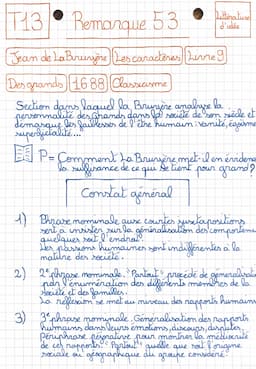 T13 • Remarque 53 • Littérature d'idée
Jean de La Bruyère Les caractères Livre 9
Des grands 1688 Classicisme
Section dans laquel la Bruyère analyse la
personnalité des Grands dans la société de son siècle et
démasque les faiblesses de l'être humain : vanité, égoïsme
superficialité...
P= Comment La Bruyère met-il en évidence
la suffisance de ce qui se tient pour grand?
Constat général
1) Phrase nominale avec courtes juxtapositions
sert à insister sur la généralisation des comportements
quelques soit l'endroit.
Les passions humaines sont indifférentes à la
maîtrise des société.
2) 2e phrase nominale. "Partout" procédé de généralisation
par l'énumération des différents membres de la
société et des familles.
La réflexion se met au niveau des rapports humains
3) 3e phrase nominale. Généralisation des rapports
humains dans leurs émotions, discours, disputes,
périphrase péjorative pour montrer la médiocrité
de ces rapports. "Partout" quelle que soit l'origine
sociale ou géographique du groupe considéré.